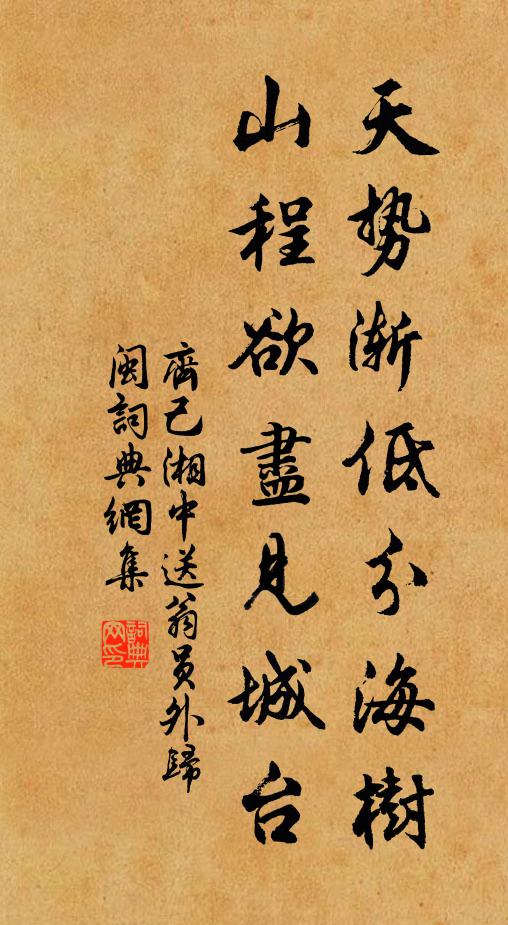 天勢漸低分海樹
山程欲盡見城台
齊己湘中送翁員外歸
閩詞典網集
詞典
网印